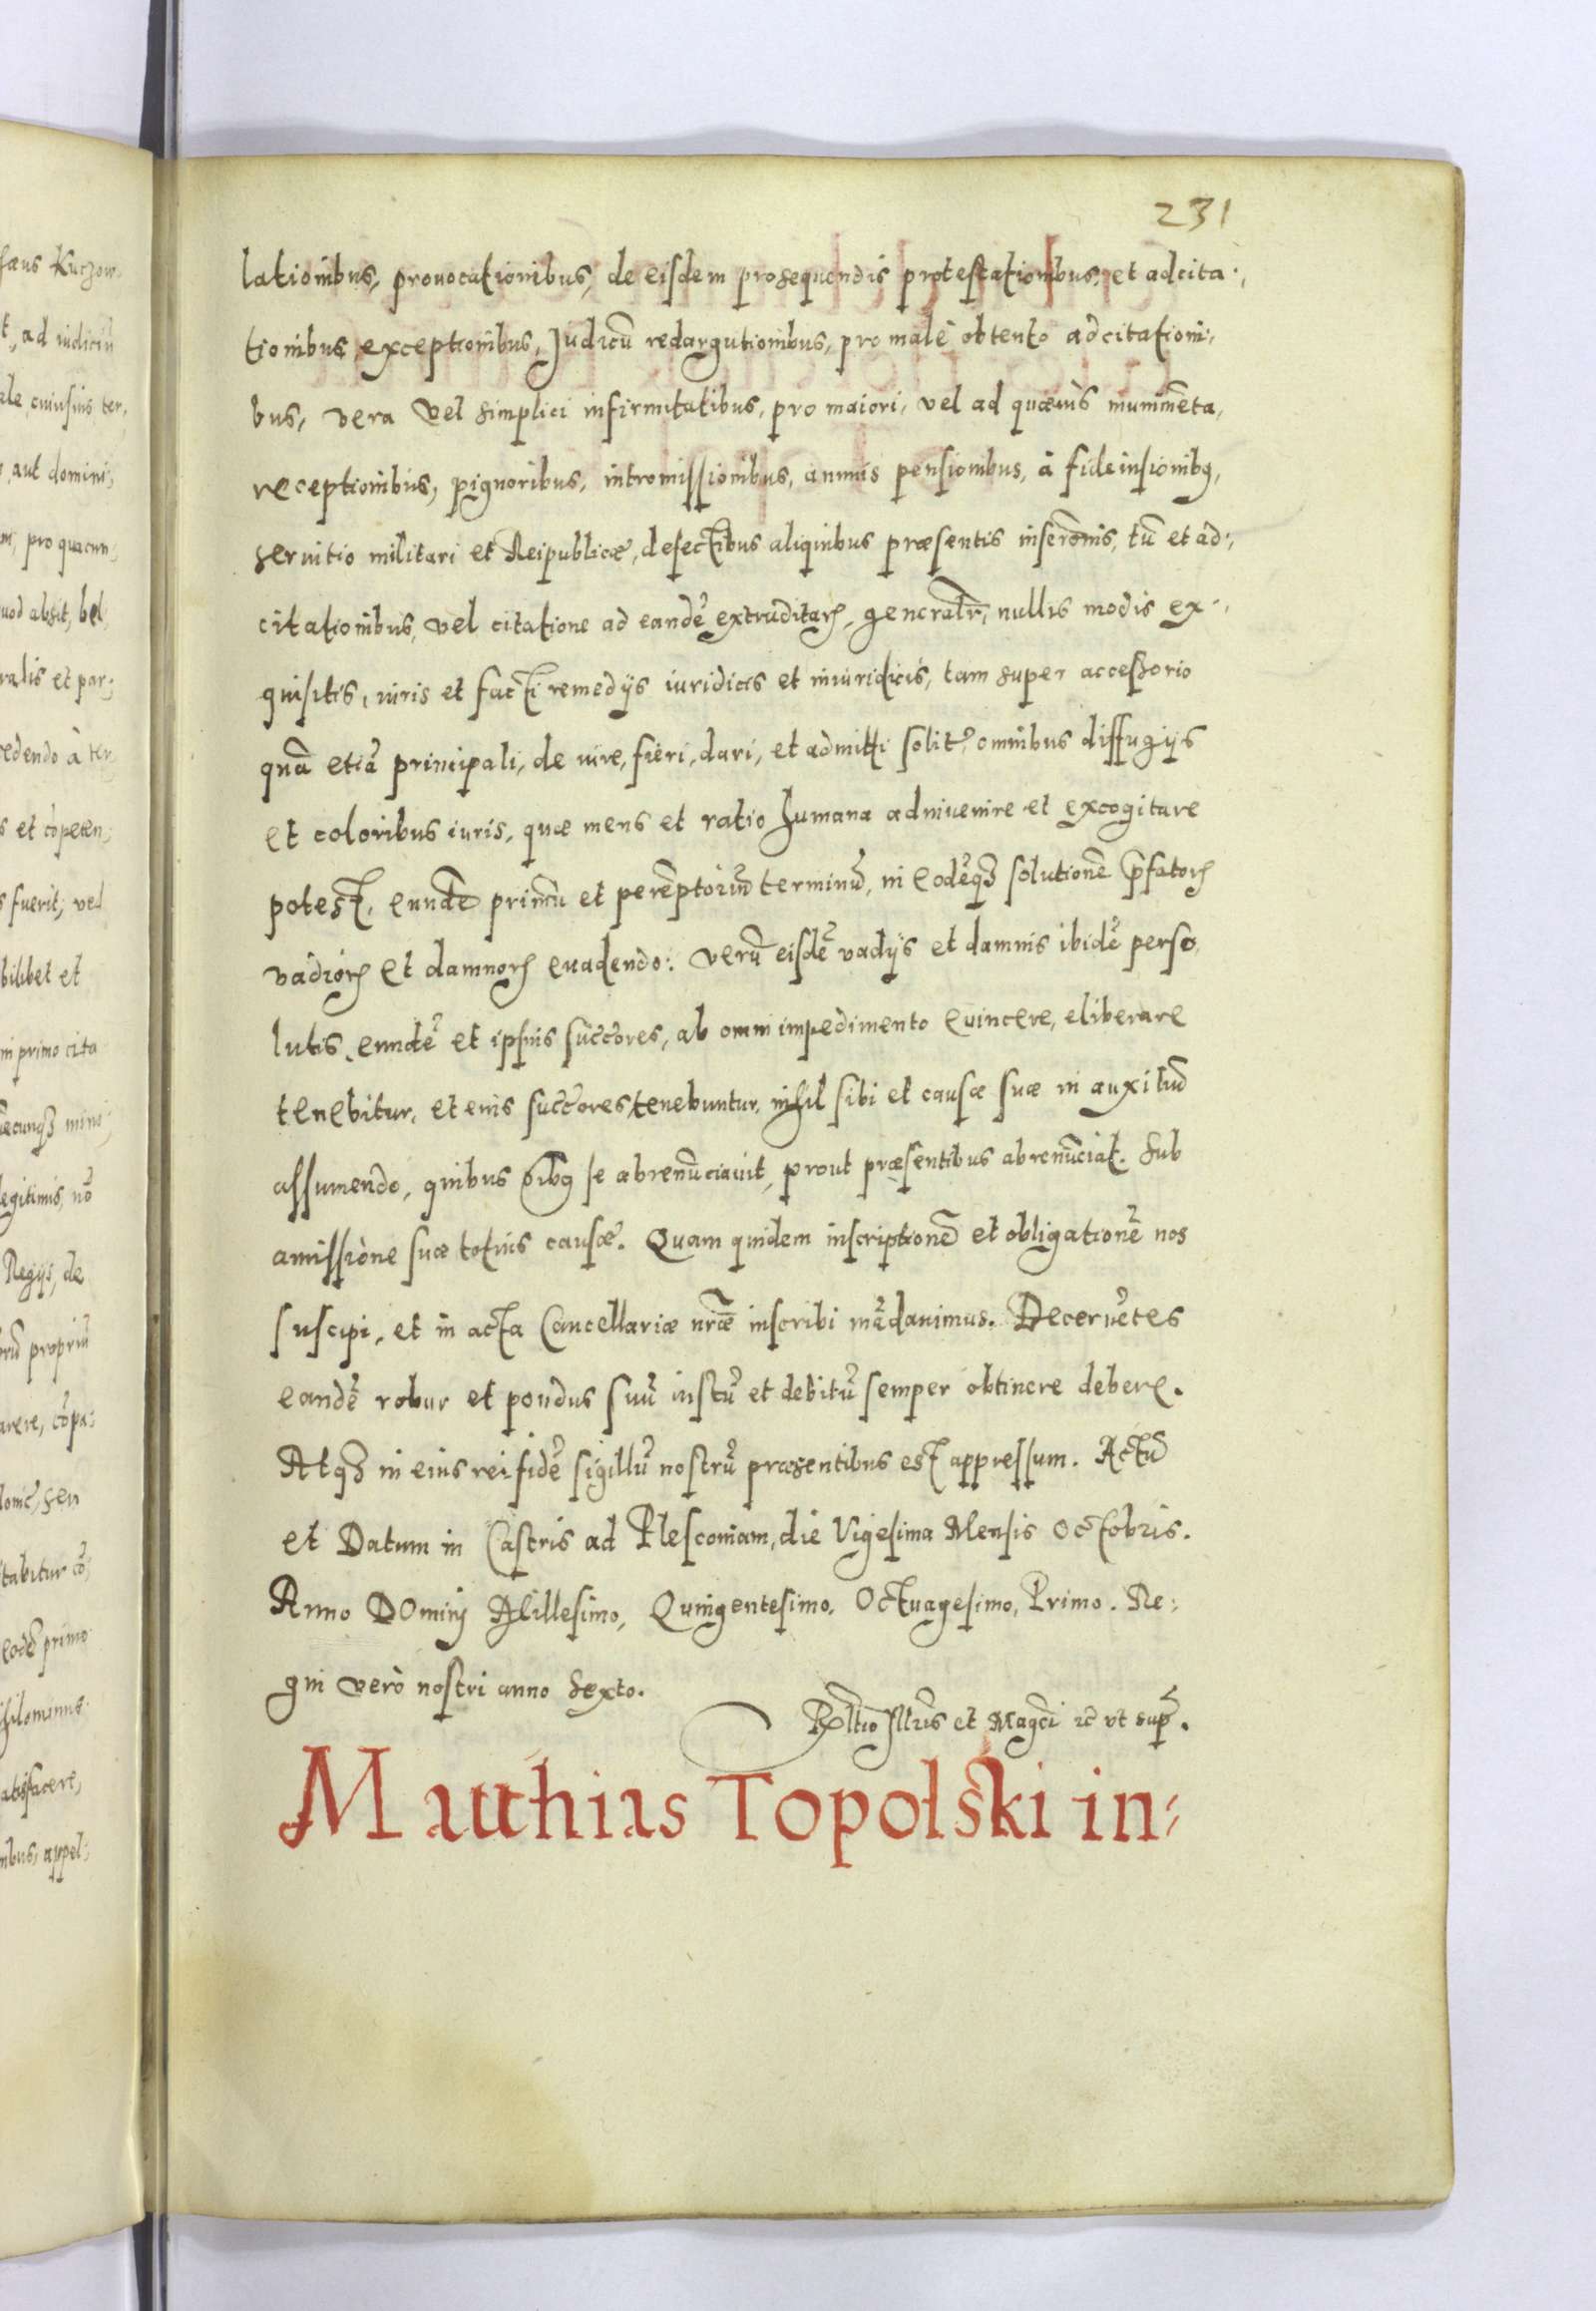 231
lationibus, prouocationibus, de eisdem prosequendis protestationibus, et adcita:,
tionibus exceptionibus, Judicũ redargutionibus, pro malè obtento adcitationi,
bus, vera vel simplici infirmitatibus, pro maiori, vel ad quæuis munimẽta,
receptionibus, pignoribus, intromissionibus, annuis pensionibus, à fideiussionibꝫ,
seruitio militari et Reipublicæ, defectibus aliquibus præsentis inscrõnis, tũ et ad:,
citationibus, vel citatione ad eandẽ extraditaꝝ, generalr̃, nullis modis ex:,
quisitis, iuris et facti remedijs iuridicis et iniuridicis, tam super accessorio
quã etiã principali, de iure, fieri, dari, et admitti solit̃, omnibus diffugijs
et coloribus iuris, quæ mens et ratio humana adinuenire et excogitare
potest, eundẽ primũ et perẽptoriũ terminũ, in eodẽqꝫ solutionẽ p̃fatoꝝ
vadioꝝ et damnoꝝ euadendo: verũ eisdẽ vadijs et damnis ibidẽ perso,
lutis, eundẽ et ipsius succ̃ores, ab omni impedimento euincere, eliberare
tenebitur, et eius succ̃ores tenebuntur, nihil sibi et causæ suæ in auxiliũ
assumendo, quibus oĩbꝫ se abrenũciauit, prout præsentibus abrenũciat. Sub
amissione suæ totius causæ. Quam quidem inscriptionẽ et obligationẽ nos
suscipi, et in acta Cancellariæ nr̃æ inscribi mãdauimus. Decernẽtes
eandẽ robur et pondus suũ iustũ et debitũ semper obtinere debere.
Atqꝫ in eius rei fidẽ sigillũ nostrũ præsentibus est appressum. Actũ
et Datum in Castris ad Plesconiam, die Vigesima Mensis Octobris.
Anno Dominj Millesimo, Quingentesimo, Octuagesimo, Primo. Re:
gni verò nostri anno sexto.
R̃ltio Jllr̃is et Magc̃i ꝛc vt sup̃.
Matthias Topolski in: